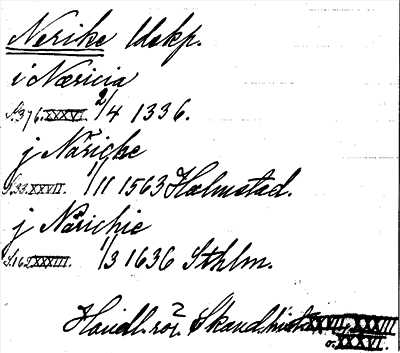 Nerike ldskp.
i Næricia
S. 376. XXXVI. 2/4 1336.
j Näricke
S. 33. XXVII. 1/11 1563 Halmstad.
j Närichie
S. 162 XXXIII. 1/3 1636 Sthlm.
Handl. rör. Skand. hist. XXVII, XXXIII
o. XXXVI.